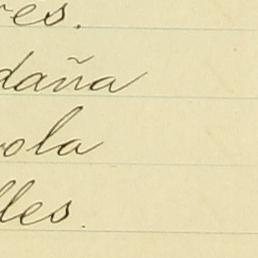 res.
daña
ola
lles.